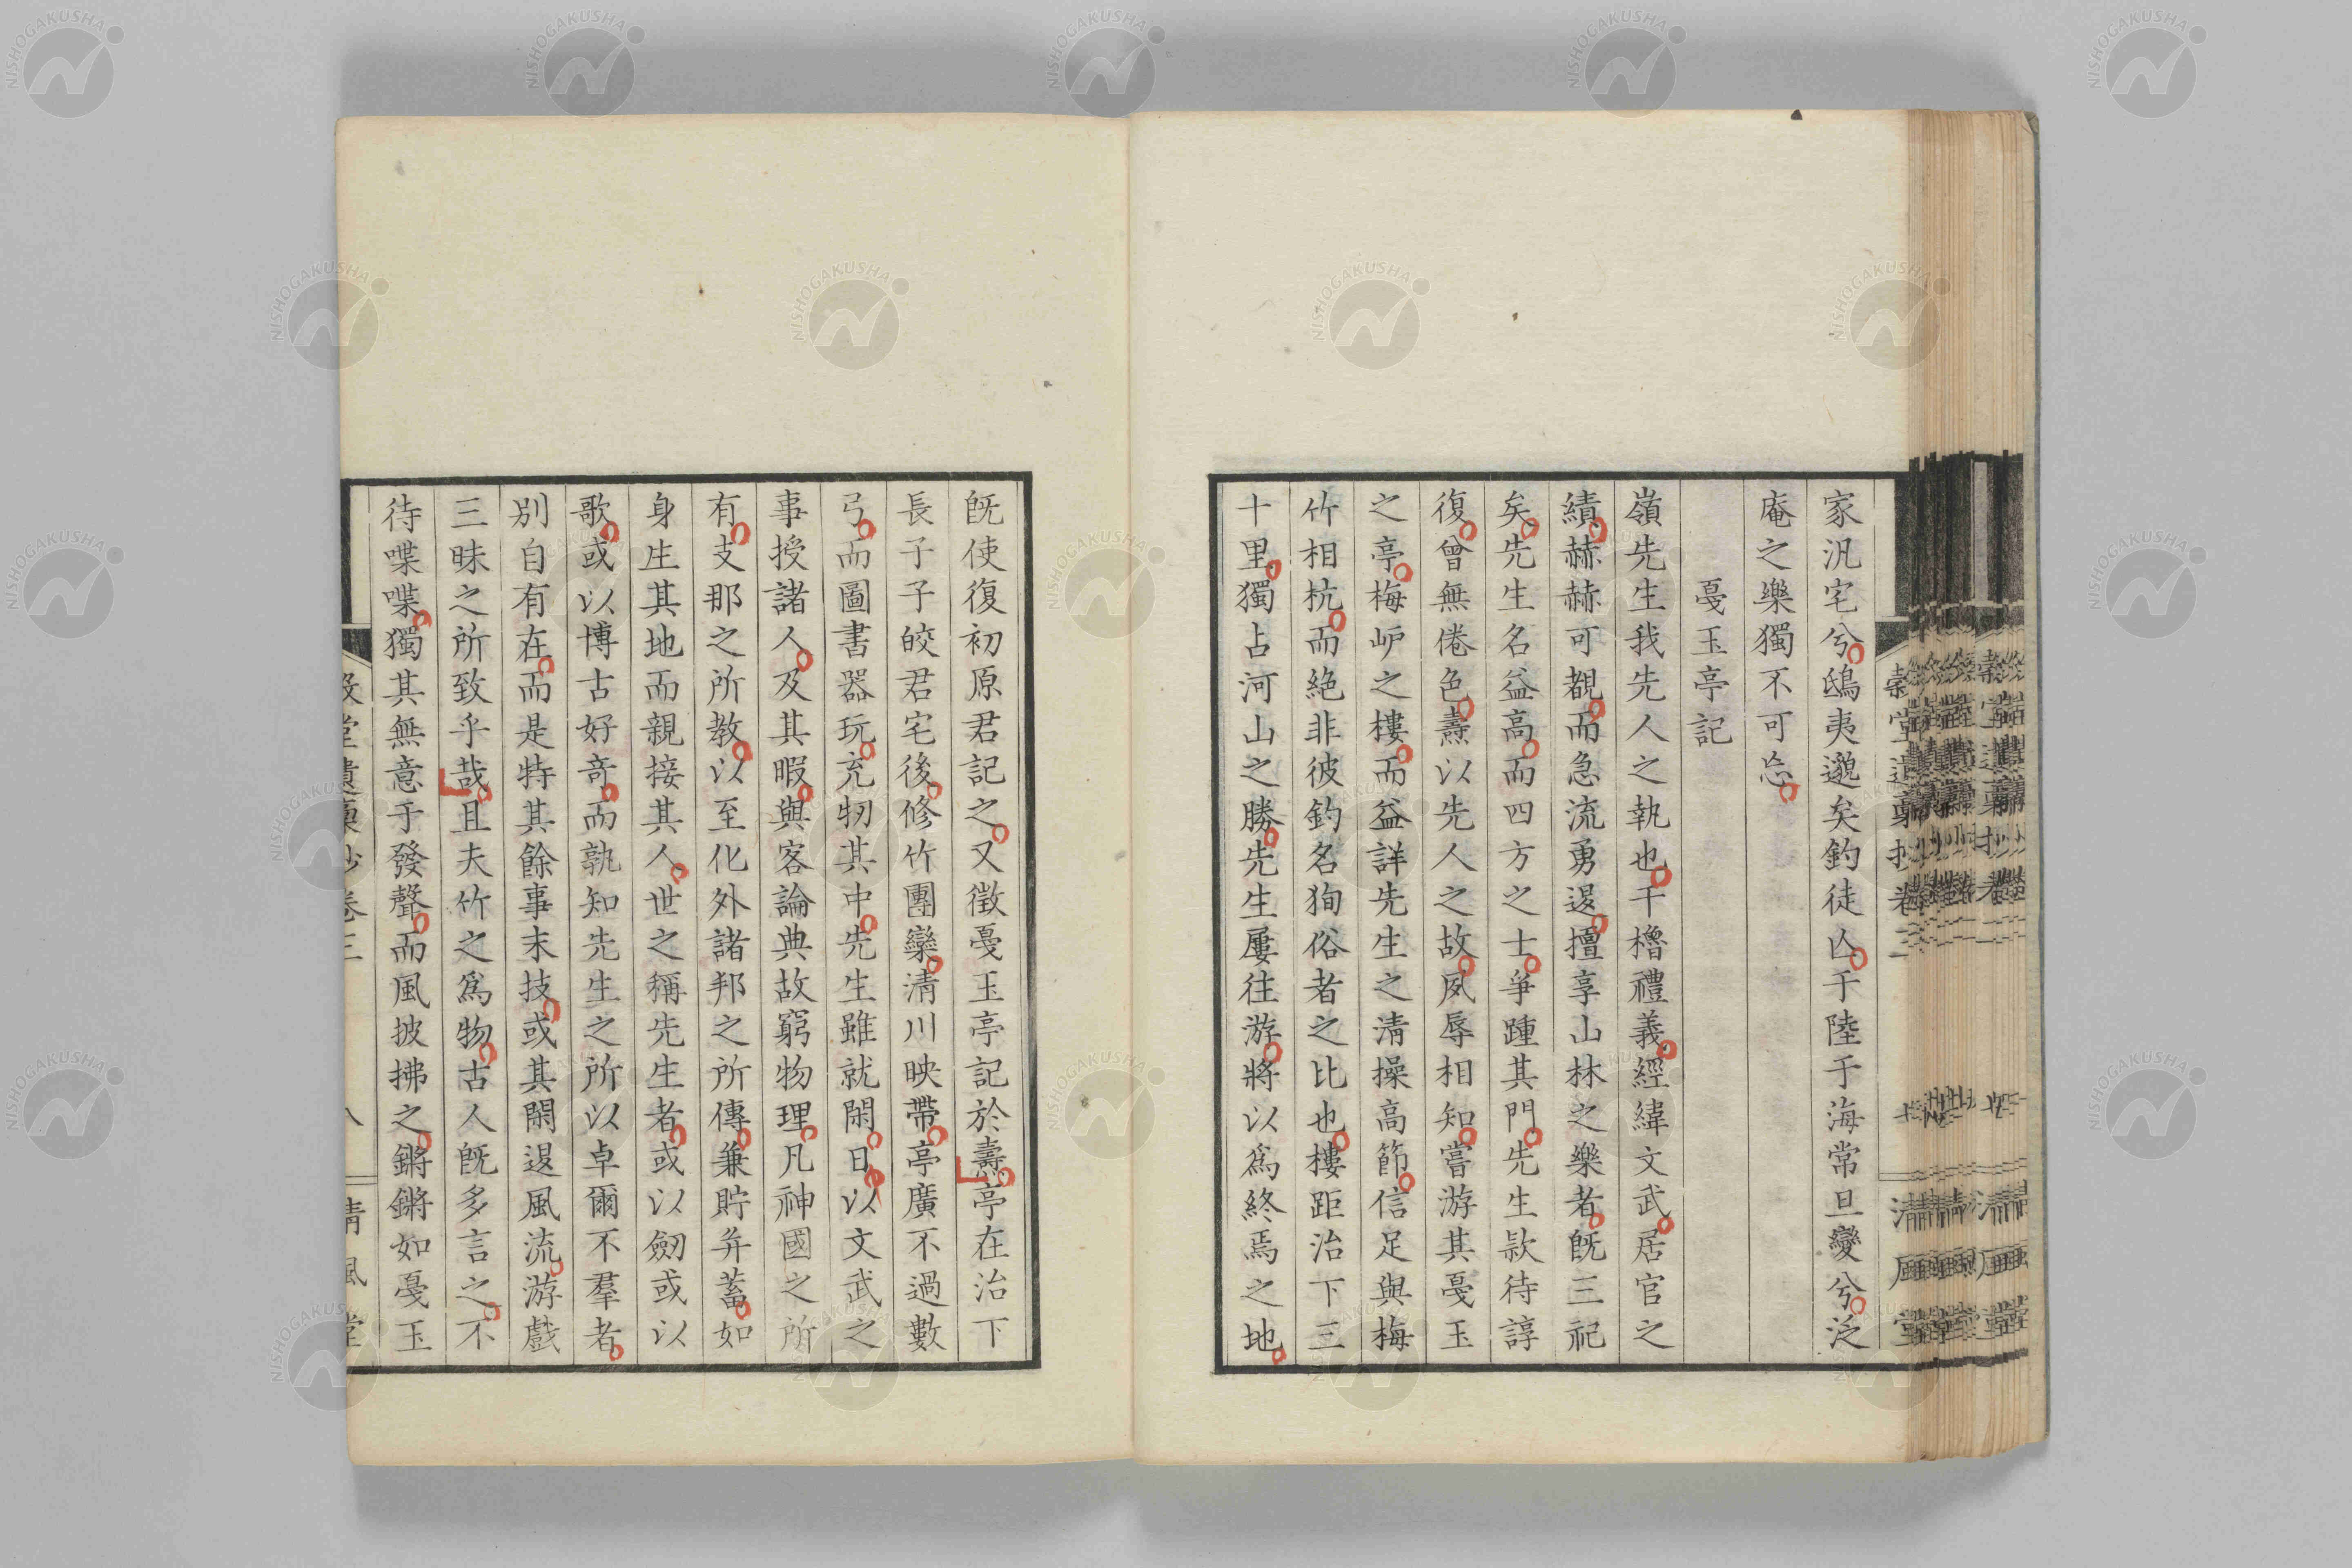 家汎宅兮鴟夷邈矣釣徒亾于陸于海常旦變兮兮泛
庵之樂獨不可忘
戞玉亭記
嶺先生我先人之執也干櫓禮義經緯文武居官之
績赫赫可覩而急流勇退擅享山林之樂者既三祀
矣先生名益高而四方之士爭踵其門先生款待諄
復曾無倦色燾以先人之故夙辱相知嘗游其戞玉
之亭梅屿之樓而益詳先生之清操高節信足與梅
竹相抗而絶非彼釣名狥俗者之比也樓距治下三
十里獨占河山之勝先生屢往游將以爲終焉之地
既使復初原君記之又徵戞玉亭記於燾亭在治下
長子子皎君宅後修竹團欒清川映帶亭廣不過數
弓而圖書器玩充牣其中先生雖就閑日以文武之
事授諸人及其暇與客論典故窮物理凡神國之所
有支那之所教以至化外諸邦之所傳兼貯弁蓄如
身生其地而親接其人世之稱先生者或以劒或以
歌或以博古好奇而孰知先生之所以卓爾不羣者
別自有在而是特其餘事末技或其閑退風流游戲
三昧之所致乎哉且夫竹之爲物古人既多言之不
待喋喋獨其無意于發聲而風披拂之鏘鏘如戞玉